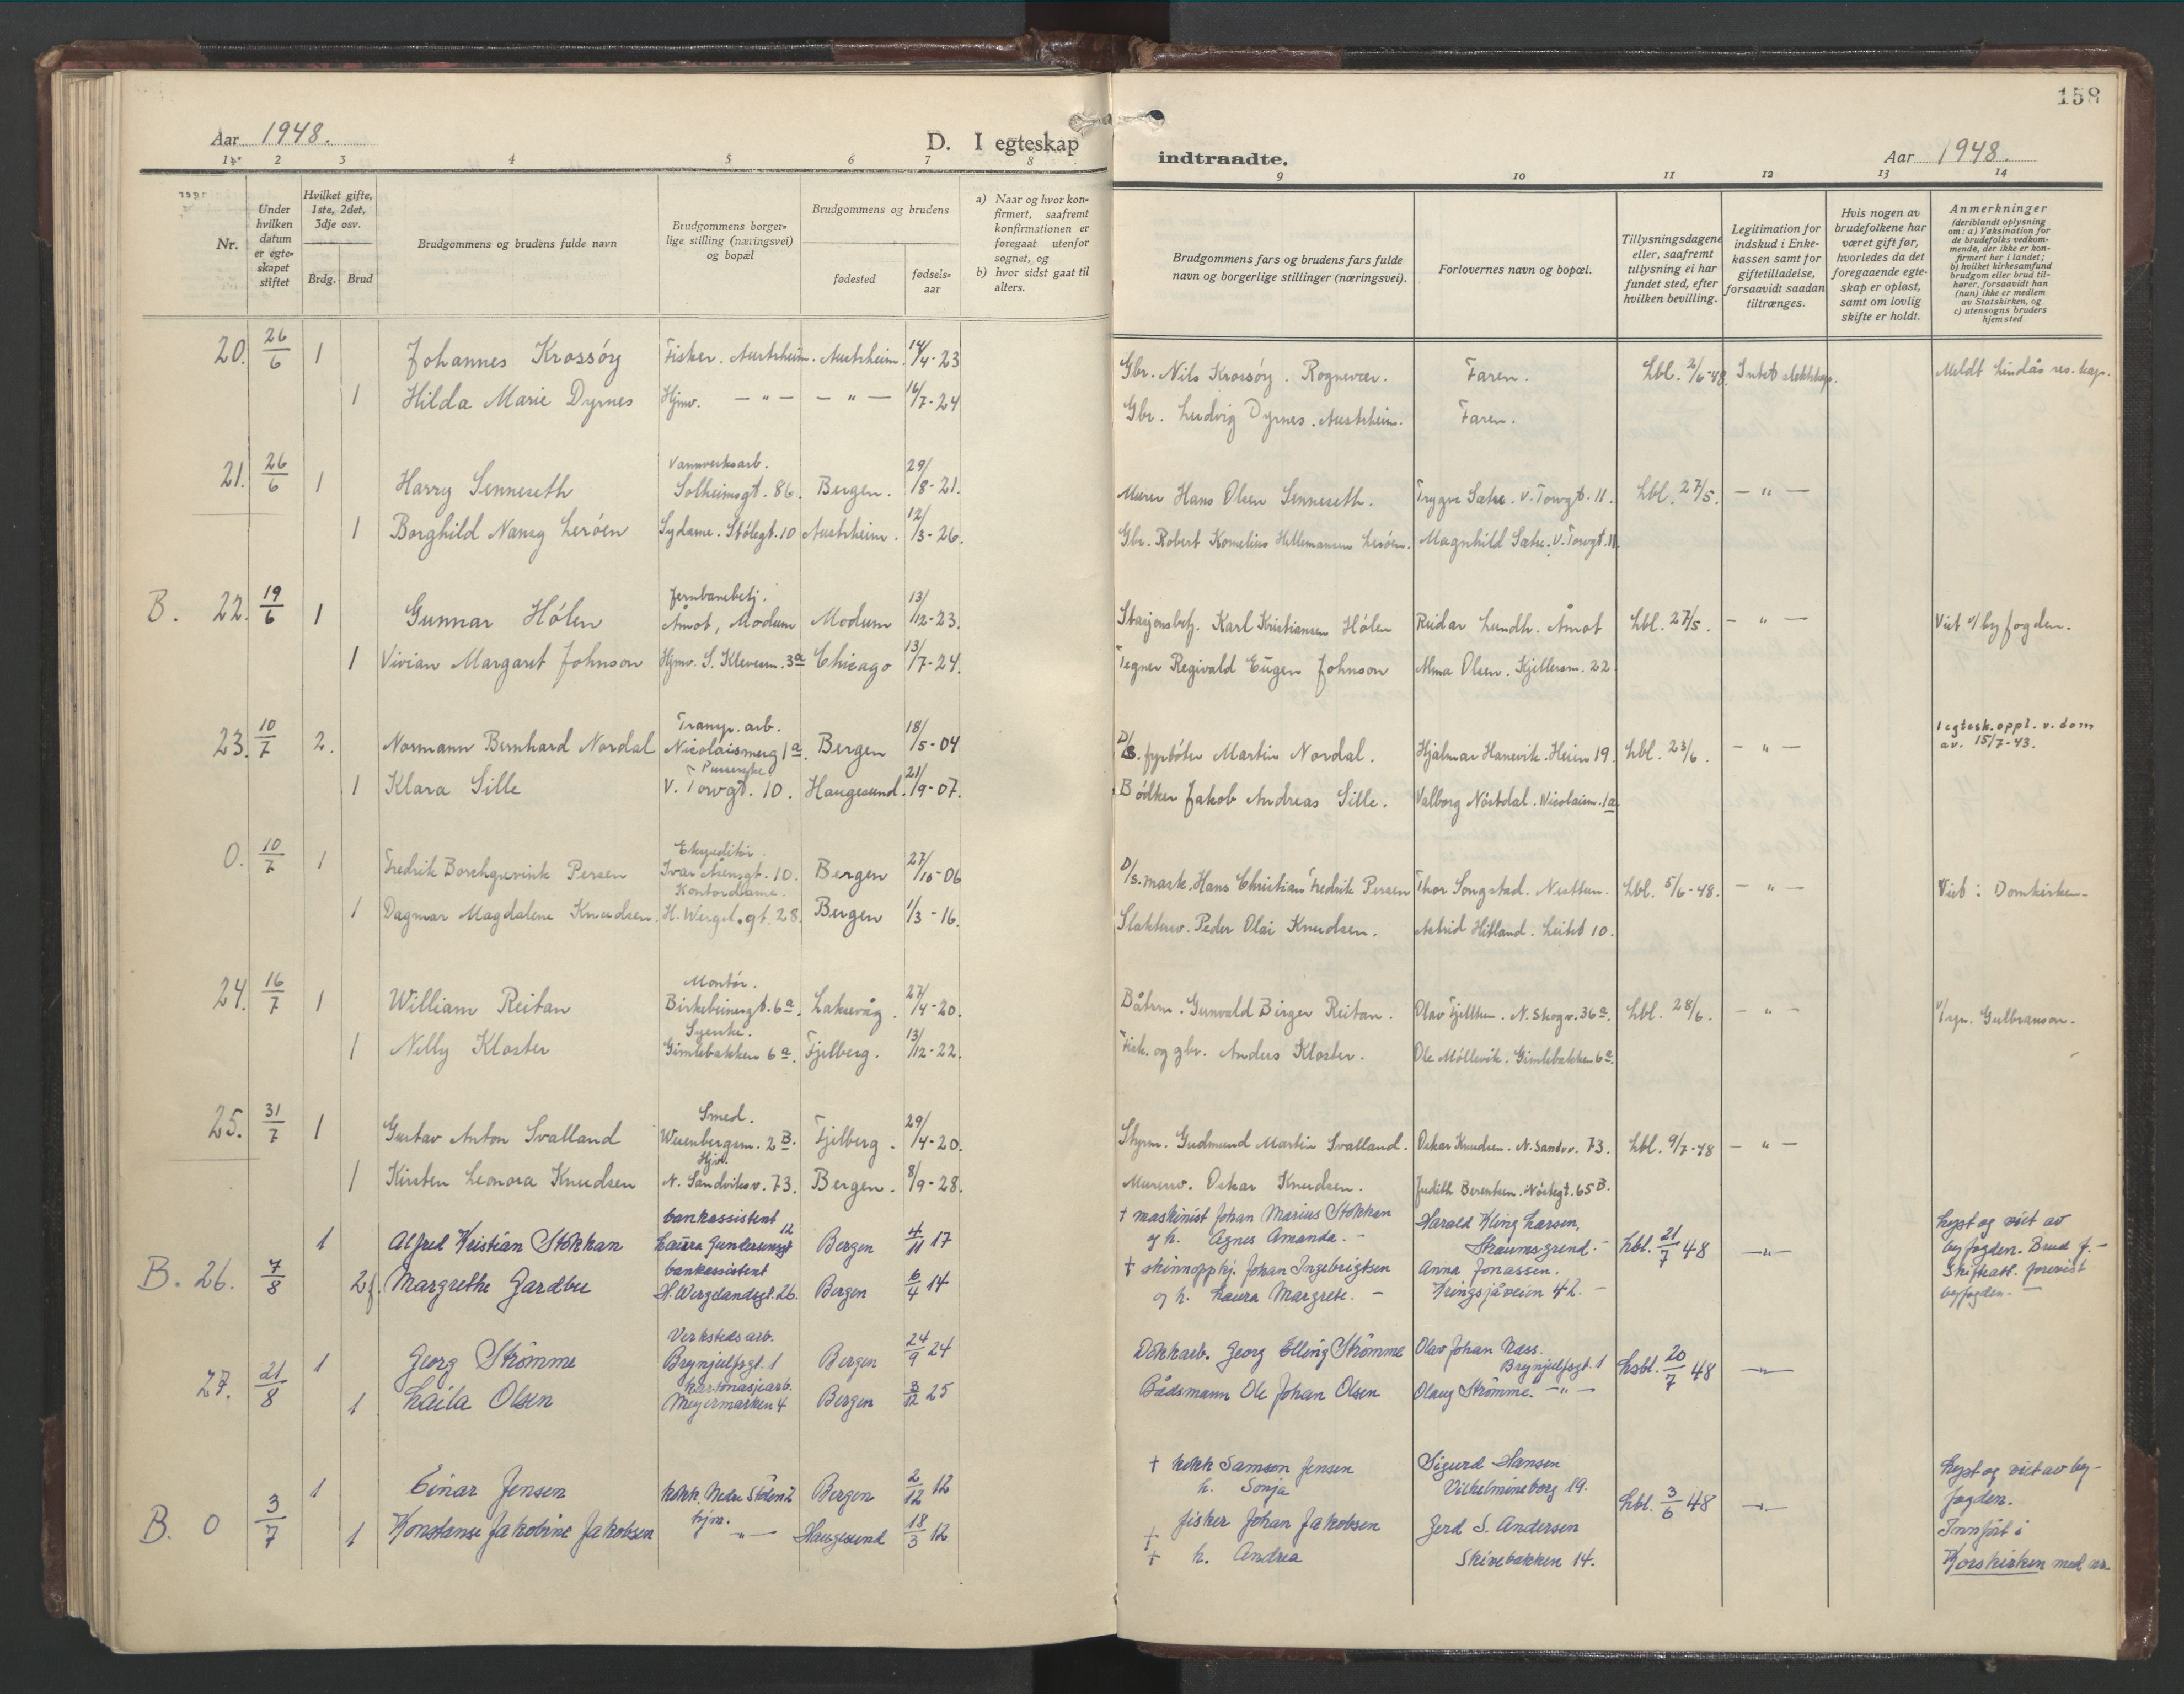 158
Aar 1948.
D. I egteskap
indtraadte.
Aar 1948.
1 2 3 4 5 6 7 8
9 10 11 12 13 14
Nr.
Under hvilken datum er egteskapet stiftet
Hvilket gifte, 1ste, 2det, 3dje osv.
Brdg. Brud
Brudgommens og brudens fulde navn
Brudgommens borgerlige stilling (næringsvei) og bopæl
Brudgommens og brudens
fødested
fødselsaar
a) Naar og hvor konfirmert, saafremt konfirmationen er foregaat utenfor sognet, og
b) hvor sidst gaat til alters.
Brudgommens fars og brudens fars fulde navn og borgerlige stillinger (næringsvei).
Forlovernes navn og bopæl.
Tillysningsdagene eller, saafremt tillysning ei har fundet sted, efter hvilken bevilling.
Legitimation for indskud i Enkekassen samt for giftetilladelse, forsaavidt saadan tiltrænges.
Hvis nogen av brudefolkene har været gift før, hvorledes da det foregaaende egteskap er opløst, samt om lovlig skifte er holdt.
Anmerkninger (deriblandt oplysning om: a) Vaksination for de brudefolks vedkommende, der ikke er konfirmert her i landet; b) hvilket kirkesamfund brudgom eller brud tilhører, forsaavidt han (hun) ikke er medlem av Statskirken, og c) utensogns bruders hjemsted
20. 26/6 1 Johannes Krossöy Fisker. Austrheim. Austrheim. 14/4-23 Gbr. Nils Krossöy. Rognevær. Faren. Lbl. 2/6-48. Intet slektskap. Meldt Lindås res. kap.
1 Hilda Marie Dyrnes Hjmv. — " — — " — 16/7-24 Gbr. Ludvig Dyrnes. Austrheim. Faren.
21. 26/6 1 Harry Senneseth Vannverksarb. Solheimsgt. 86. Bergen. 29/8-21. Murer Hans Olsen Senneseth. Trygve Sætre. V. Torvgt. 11. Lbl. 27/5. — " —
1 Borghild Nansy Leröen Sydame. Stölegt. 10 Austrheim. 12/3-26. Gbr. Robert Kornelius Hillemansen Leröen. Magnhild Sætre. V. Torvgt. 11.
B. 22. 19/6 1 Gunnar Hölen Jernbanebetj. Åmot, Modum Modum 13/12-23. Stasjonsbetj. Karl Kristiansen Hölen Reidar Lundh. Åmot Lbl. 27/5. — " — Viet v/ byfogden.
1 Vivian Margaret Johnson Hjmv. S. Kleveim. 3a Chicago 13/7-24. Tegner Regivald Eugen Johnson Alma Olsen. Kjellersm. 22.
23. 10/7 2. Normann Bernhard Nordal Transp. arb. Nicolaismug 1a. Bergen 18/5-04 D/S. fyrböter Martin Nordal. Hjalmar Hanevik. Heien 19. Lbl. 23/6. — " — 1 egtesk. oppl. v. dom av. 15/7-43.
1 Klara Sille Pusserske V. Torvgt. 10. Haugesund. 21/9-07. Bödker Jakob Andreas Sille. Valborg Nöstdal. Nicolaism. 1a
0. 10/7 1 Fredrik Borchgrevink Persen Ekspeditör. Ivar Åsensgt. 10. Bergen 27/10-06 D/S. mask. Hans Christian Fredrik Persen Thor Songstad. Nesttun. Lbl. 5/6-48. — " — Viet i Domkirken.
1 Dagmar Magdalene Knudsen. Kontordame. H. Wergel. gt. 28. Bergen 1/3-16. Slakterov. Peder Olai Knudsen. Astrid Hitland. Leitet 10.
24. 16/7 1 William Reitan Montör. Birkebeinergt. 6a. Laksevåg. 27/4-20. Båtsm. Gunvald Birger Reitan. Olav Fjellken. N. Skogv. 36a. Lbl. 28/6. — " — v/ spr. Gulbranson.
1 Nelly Kloster Syerske. Gimlebakken 6a. Fjelberg. 13/12-22. Fisk. og gbr. Anders Kloster. Ole Möllevik. Gimlebakken 6a.
25. 31/7 1 Gustav Anton Svalland Smed. Wesenbergsm. 2B. Fjelberg. 29/4-20. Styrm. Gudmund Martin Svalland. Oskar Knudsen. N. Sandvv. 73. Lbl. 9/7-48 — " —
1 Kirsten Leonora Knudsen Hjv. N. Sandviksv. 73. Bergen. 8/9-28. Murersv. Oskar Knudsen. Judith Berentsen. Nöstegt. 65B.
B. 26. 7/8 1 Alfred Kristian Stökkan bankassistent Laura Gundersensgt 12 Bergen 4/11 17 † maskinist Johan Marius Stokkan og h. Agnes Amanda. Harald Kling Larsen, Straumsgrend. Lbl. 21/7 48 — " — Lyst og viet av byfogden. Brud f. Skifteatt. forevist byfogden.
2f. Margrethe Gardbu bankassistent H. Wergelandsgt. 26. Bergen 6/4 14 † skinnopphj. Johan Ingebrigtsen og h. Laura Margrete. Anna Jonassen. Kringsjåveien 42.
27. 21/8 1 Georg Strömme Verkstedsarb. Brynjulfsgt. 1 Bergen 24/9 24 Dokkarb. Georg Elling Strömme Olav Johan Næss. Brynjulfsgt. 1 Lsbl. 20/7 48 — " —
1 Laila Olsen kartonasjearb. Meyermarken 4 Bergen 3/12 25 Bådsmann Ole Johan Olsen Olaug Strömme. — " —
B. 0 3/7 1 Einar Jensen kokk. Nedre Stölen 2 Bergen 2/12 12 † kokk Samson Jensen h. Sonja Sigurd Hansen Vilhelmineborg 19. Lbl. 3/6 48 — " — Lyst og viet av byfogden. Innfört i Korskirken med nr.
1 Konstanse Jakobine Jakobsen hjm. — " — Haugesund 18/3 12 † fisker Johan Jakobsen † h. Andrea Gerd S. Andersen Skivebakken 14.